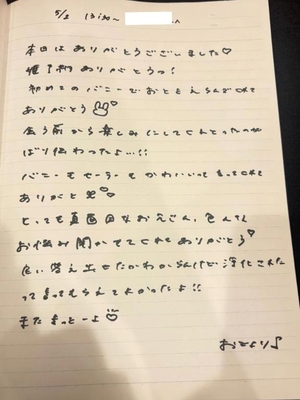 5/2 13:30〜
本日はありがとうございました♡
催予約ありがとうっ!
初めてのバニーでおとをえらんでくれて
ありがとう
会う前から楽しみにしてくれとったのが
ばり伝わったよ…!!
バニーもセーラーもかわいいって言ってくれて
ありがと
とっても真面目なお兄さん、色んな
お悩み聞かせてくれてありがとう♡
い替え出たかわからんけど浄化された
って言ってもらえてよかったよ!!
またまっとーよ
おとより♪